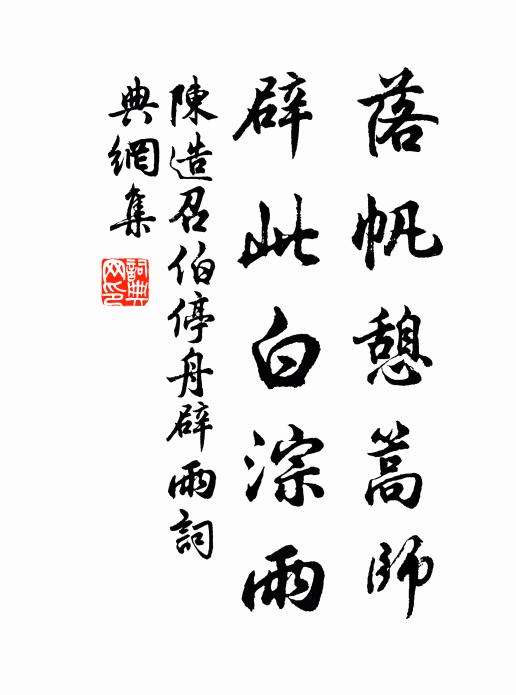 落帆憩篙師
辟此白淙雨
陳造召伯停舟辟雨詞
典網集
詞典
网印